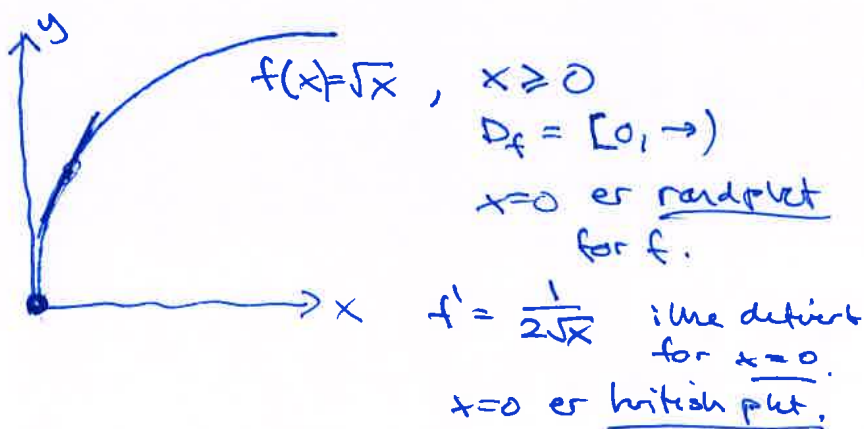 y
f(x)=√x , x ≥ 0
D_f = [0, →)
x=0 er randpkt
for f.
x
f' = 1/(2√x) ikke definert
for x=0.
x=0 er kritisk pkt.